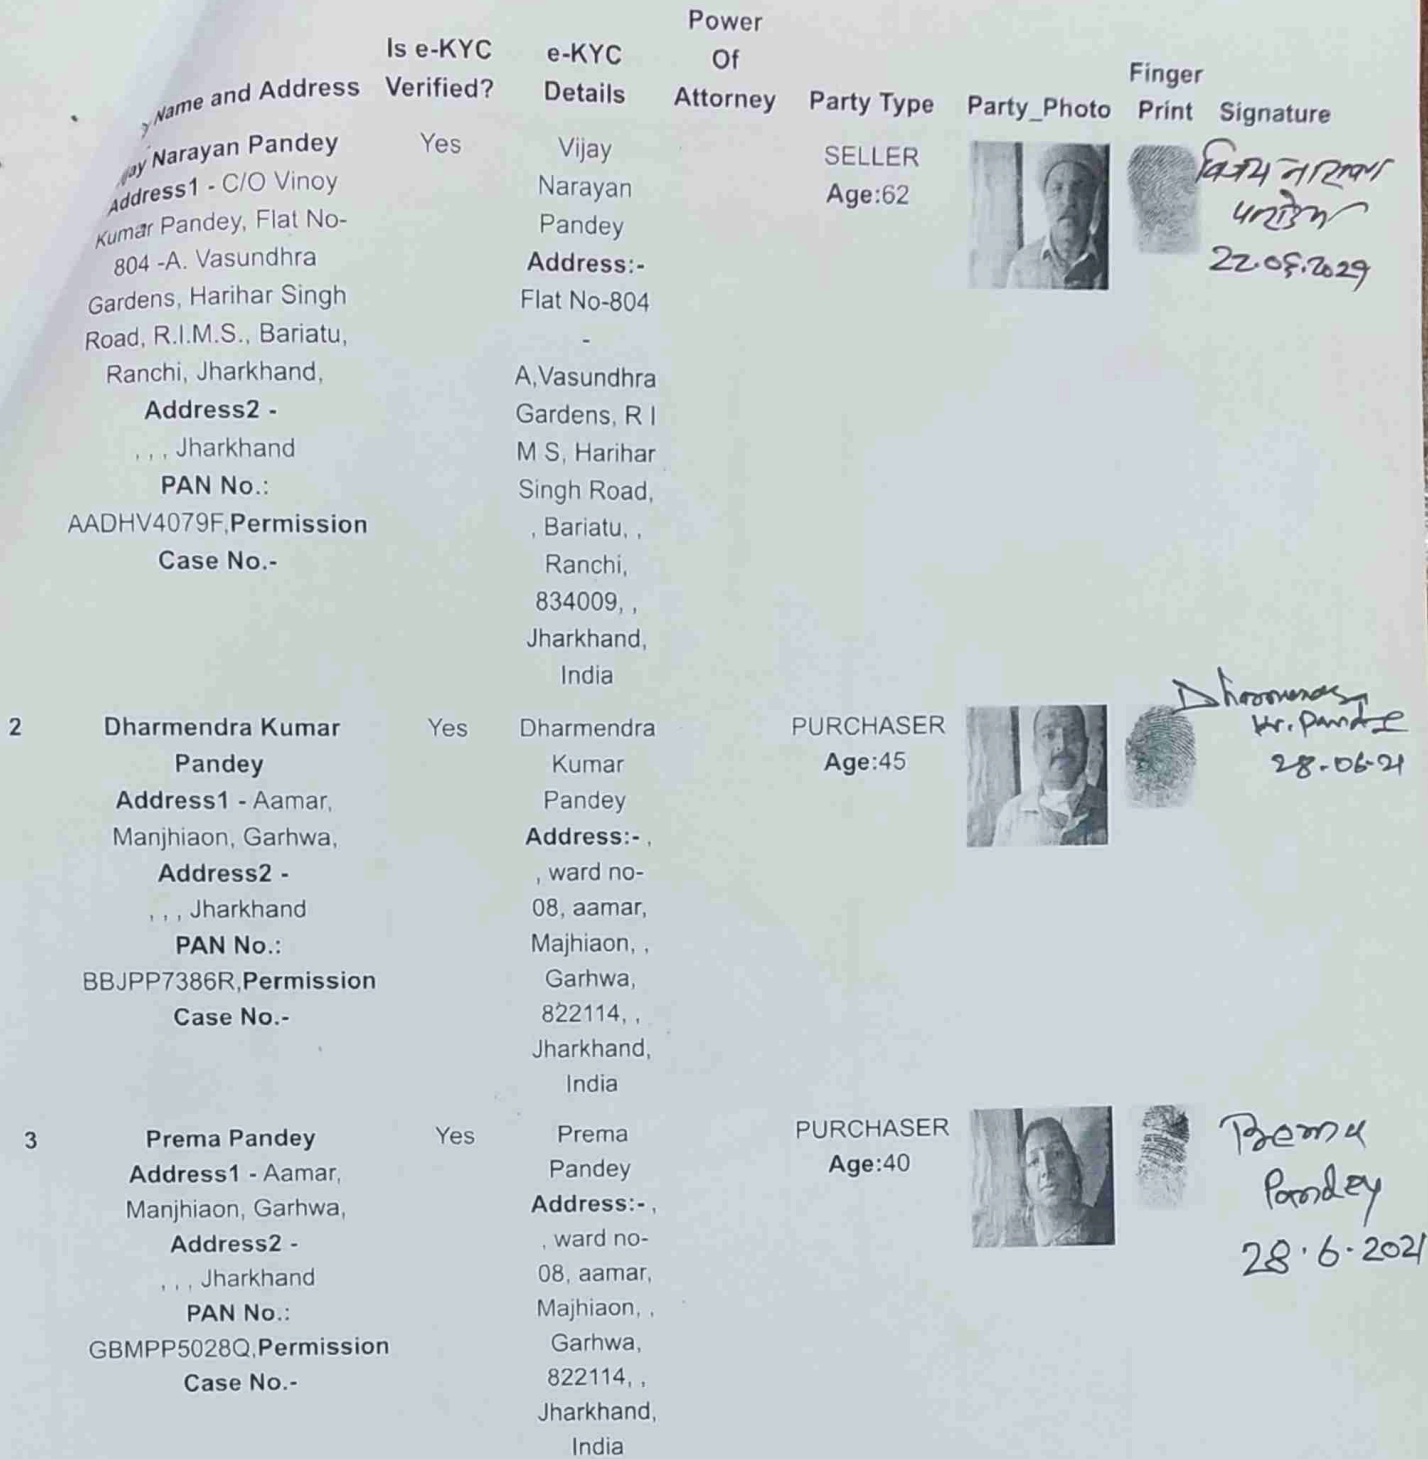 Name and Address Is e-KYC Verified? e-KYC Details Power Of Attorney Party Type Party_Photo Finger Print Signature
Narayan Pandey
Address1 - C/O Vinoy
Kumar Pandey, Flat No-
804 -A. Vasundhra
Gardens, Harihar Singh
Road, R.I.M.S., Bariatu,
Ranchi, Jharkhand,
Address2 -
, , , Jharkhand
PAN No.:
AADHV4079F,Permission
Case No.-
Yes
Vijay
Narayan
Pandey
Address:-
Flat No-804
-
A,Vasundhra
Gardens, R I
M S, Harihar
Singh Road,
, Bariatu, ,
Ranchi,
834009, ,
Jharkhand,
India
SELLER
Age:62
विजय नारायण
पाण्डेय
2
Dharmendra Kumar
Pandey
Address1 - Aamar,
Manjhiaon, Garhwa,
Address2 -
, , , Jharkhand
PAN No.:
BBJPP7386R,Permission
Case No.-
Yes
Dharmendra
Kumar
Pandey
Address:- ,
, ward no-
08, aamar,
Majhiaon, ,
Garhwa,
822114, ,
Jharkhand,
India
PURCHASER
Age:45
Kr. Pandey
28-06-21
3
Prema Pandey
Address1 - Aamar,
Manjhiaon, Garhwa,
Address2 -
, , , Jharkhand
PAN No.:
GBMPP5028Q,Permission
Case No.-
Yes
Prema
Pandey
Address:- ,
, ward no-
08, aamar,
Majhiaon, ,
Garhwa,
822114, ,
Jharkhand,
India
PURCHASER
Age:40
Pandey
28.6.2021